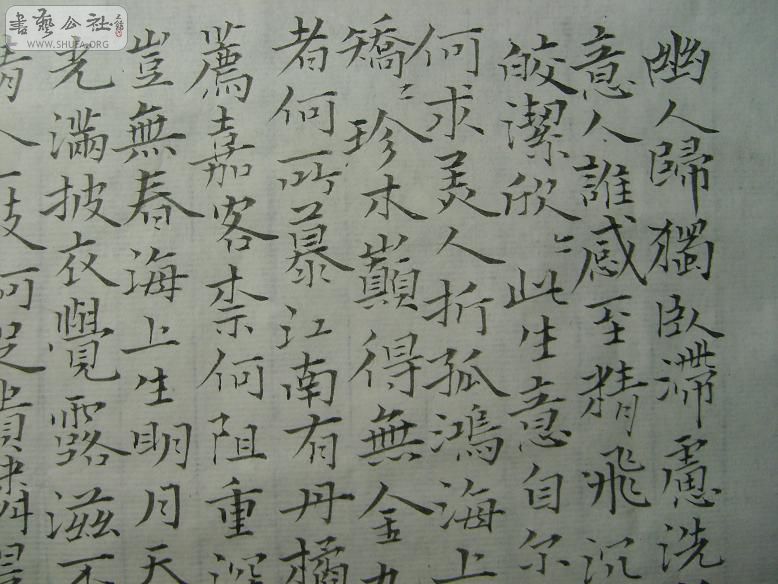 書藝公社
www.SHUFA.ORG
幽人歸獨臥滯慮洗
意人誰感至精飛沉
皎潔欣〻此生意自尔
何求美人折孤鴻海上
矯〻珍木巔得無金丸
者何所慕江南有丹橘
薦嘉客柰何阻重深
豈無春海上生明月天
光滿披衣覺露滋不
人一枝何足貴